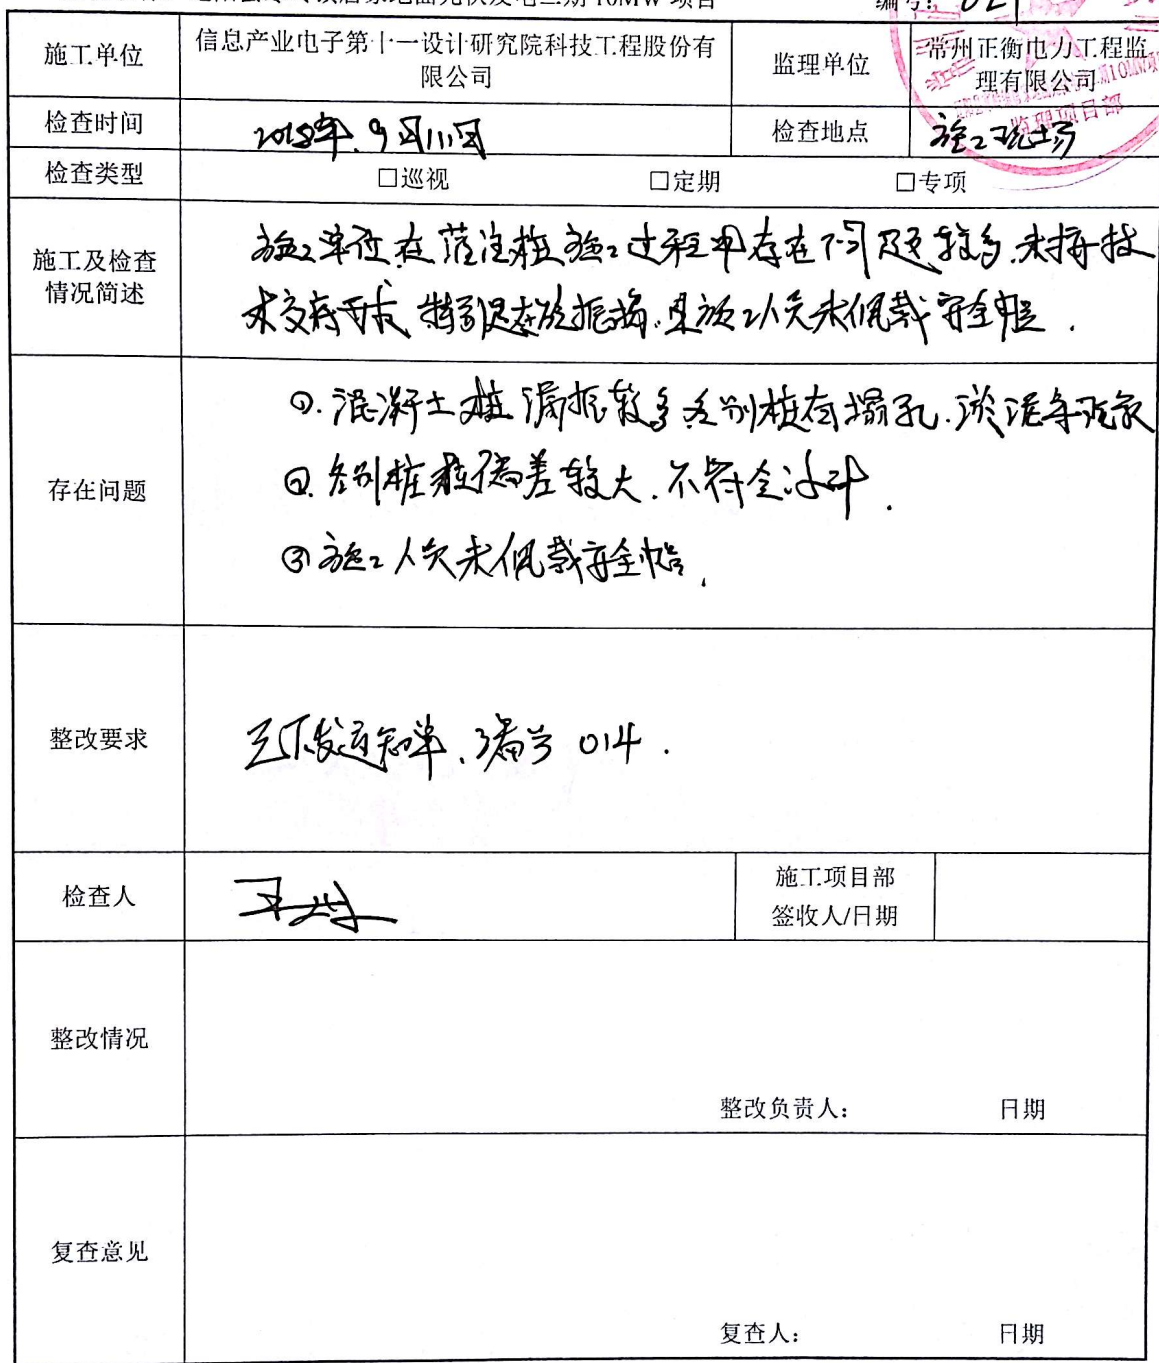 地面光伏发电二期10MW项目 编号：021
施工单位 信息产业电子第十一设计研究院科技工程股份有限公司 监理单位 常州正衡电力工程监理有限公司
监理项目部
检查时间 2018年.9月11日 检查地点 施工现场
检查类型 □巡视 □定期 □专项
施工及检查情况简述
施工单位在灌注桩施工过程中存在问题较多.未按技
术交底要求 特别是在振捣.且施工人员未佩戴安全帽.
存在问题
①.混凝土桩漏振较多 各别桩有塌孔.淤泥等现象
②.各别桩 偏差较大.不符合设计.
③施工人员未佩戴安全帽.
整改要求
已下发通知单.编号014.
检查人 施工项目部
签收人/日期
整改情况
整改负责人： 日期
复查意见
复查人： 日期